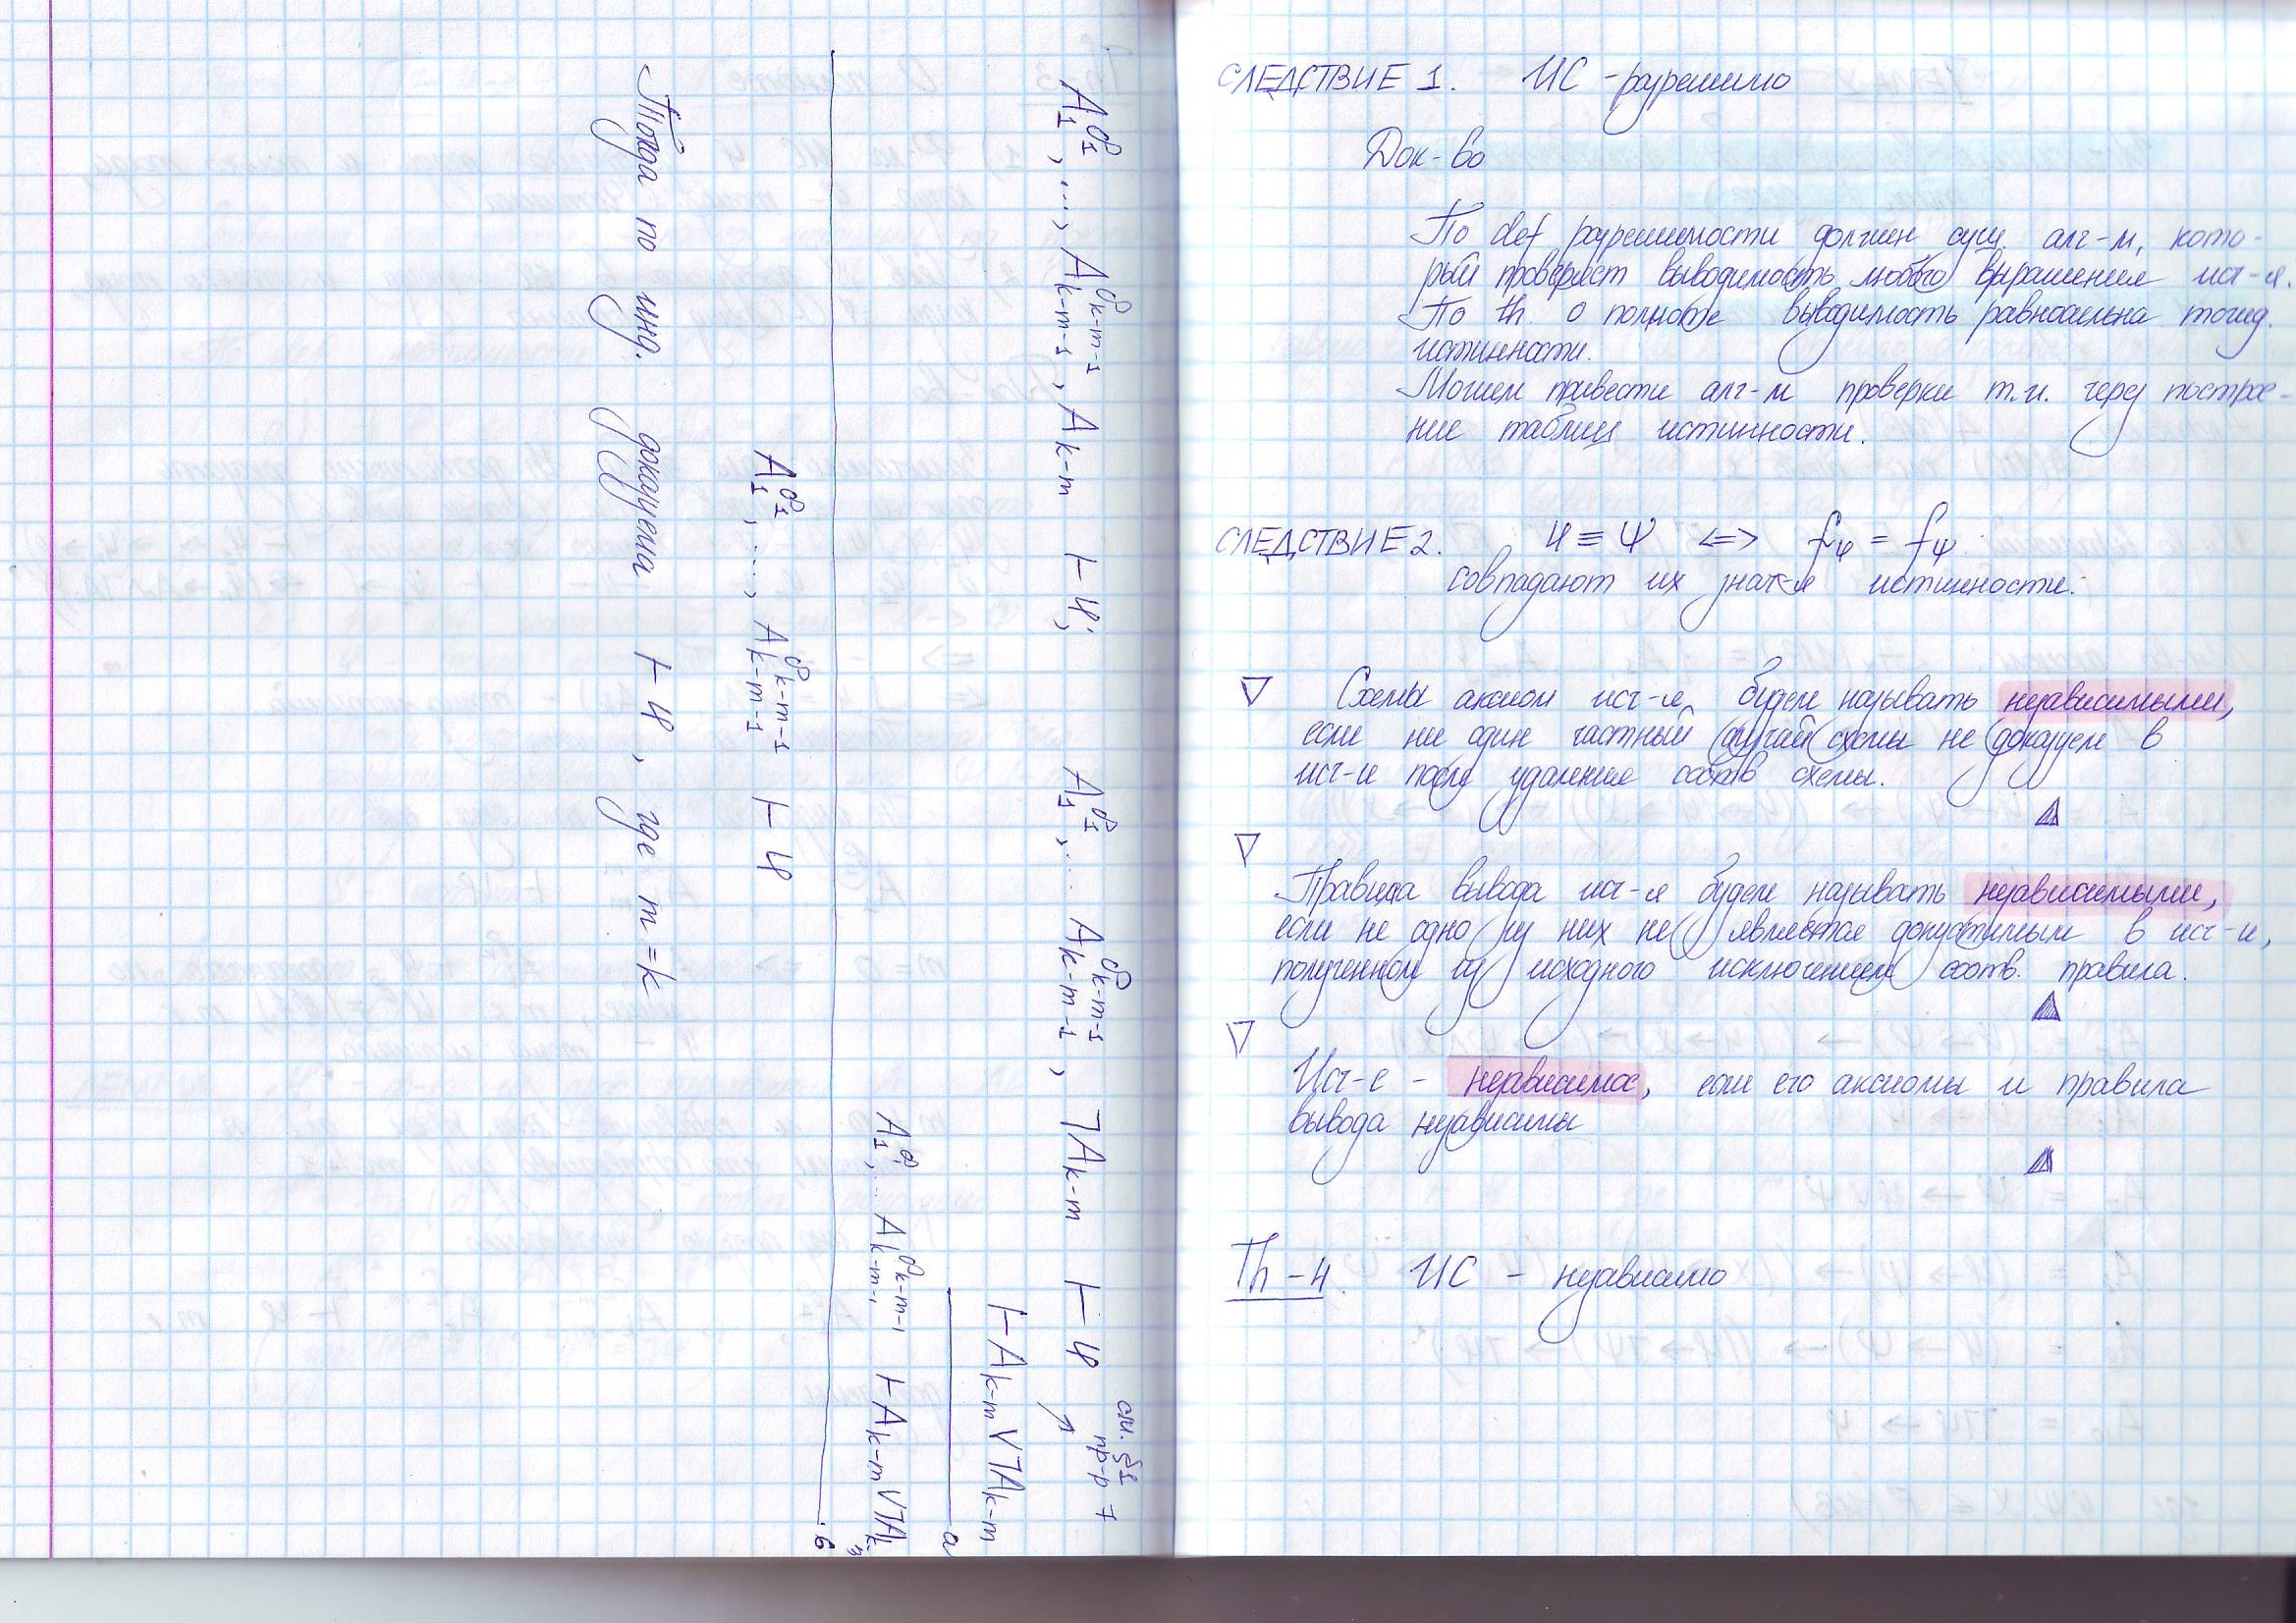 A₁^σ₁, ..., A_{k-m-1}^{σ_{k-m-1}}, A_{k-m} ⊢ φ; A₁^σ₁, ... A_{k-m-1}^{σ_{k-m-1}}, ¬A_{k-m} ⊢ φ
см. §1
пр-р 7
⊢ A_{k-m} ∨ ¬A_{k-m}
а
A₁^σ₁, ... A_{k-m-1}^{σ_{k-m-1}} ⊢ A_{k-m} ∨ ¬A_{k-m}
в
A₁^σ₁, ..., A_{k-m-1}^{σ_{k-m-1}} ⊢ φ
Тогда по инд. доказуема ⊢ φ, где m = k
СЛЕДСТВИЕ 1. ИС - разрешимо
Док-во
По def разрешимости должен сущ. алг-м, кото-
рый проверяет выводимость любого выражения исч-я.
По th. о полноте выводимость равносильна тожд.
истинности.
Можем привести алг-м проверки т.и. через построе-
ние таблиц истинности.
СЛЕДСТВИЕ 2. φ ≡ ψ <=> f_φ = f_ψ
совпадают их знач-я истинности.
▽ Схемы аксиом исч-я будем называть независимыми,
если ни один частный случай схемы не доказуем в
исч-и после удаления соотв схемы.
▽
Правила вывода исч-я будем называть независимыми,
если не одно из них не является допустимым в исч-и,
полученном из исходного исключением соотв. правила.
▽
Исч-е - независимое, если его аксиомы и правила
вывода независимы
Th-4. ИС - независимо